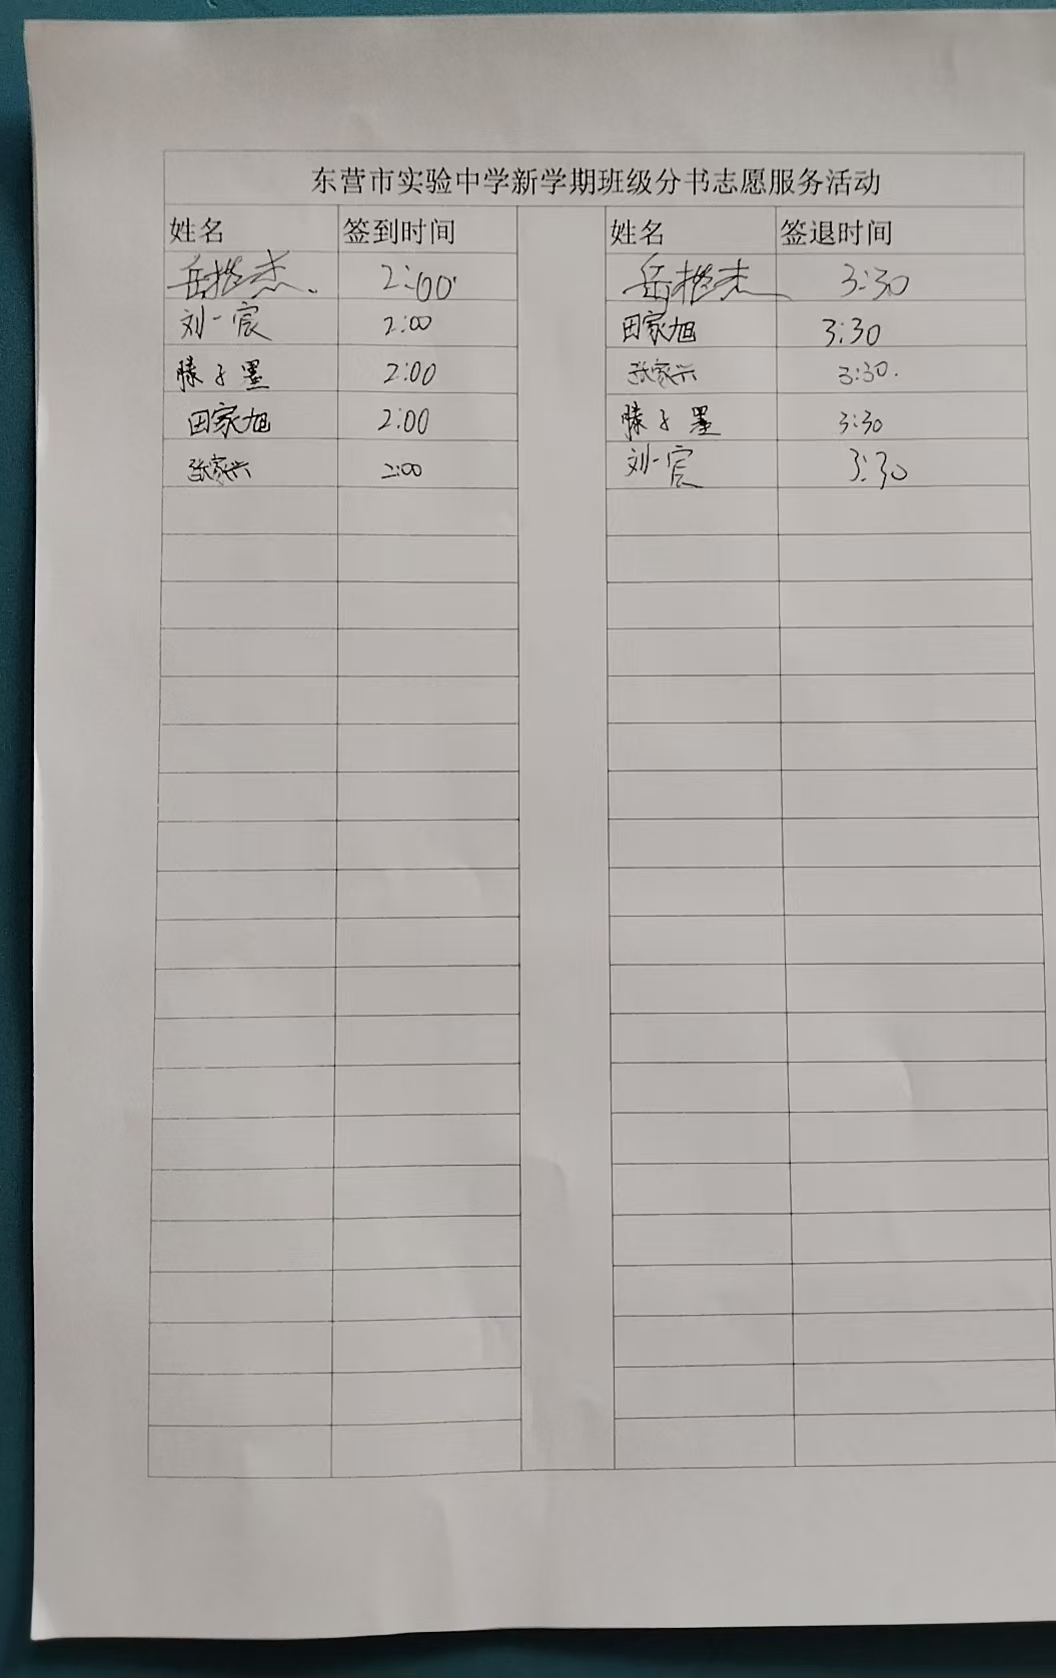 东营市实验中学新学期班级分书志愿服务活动
姓名 签到时间 姓名 签退时间
岳 杰 2:00 岳 杰 3:30
刘一宸 2:00 田家旭 3:30
滕子墨 2:00 张家兴 3:30.
田家旭 2:00 滕子墨 3:30
张家兴 2:00 刘一宸 3:30